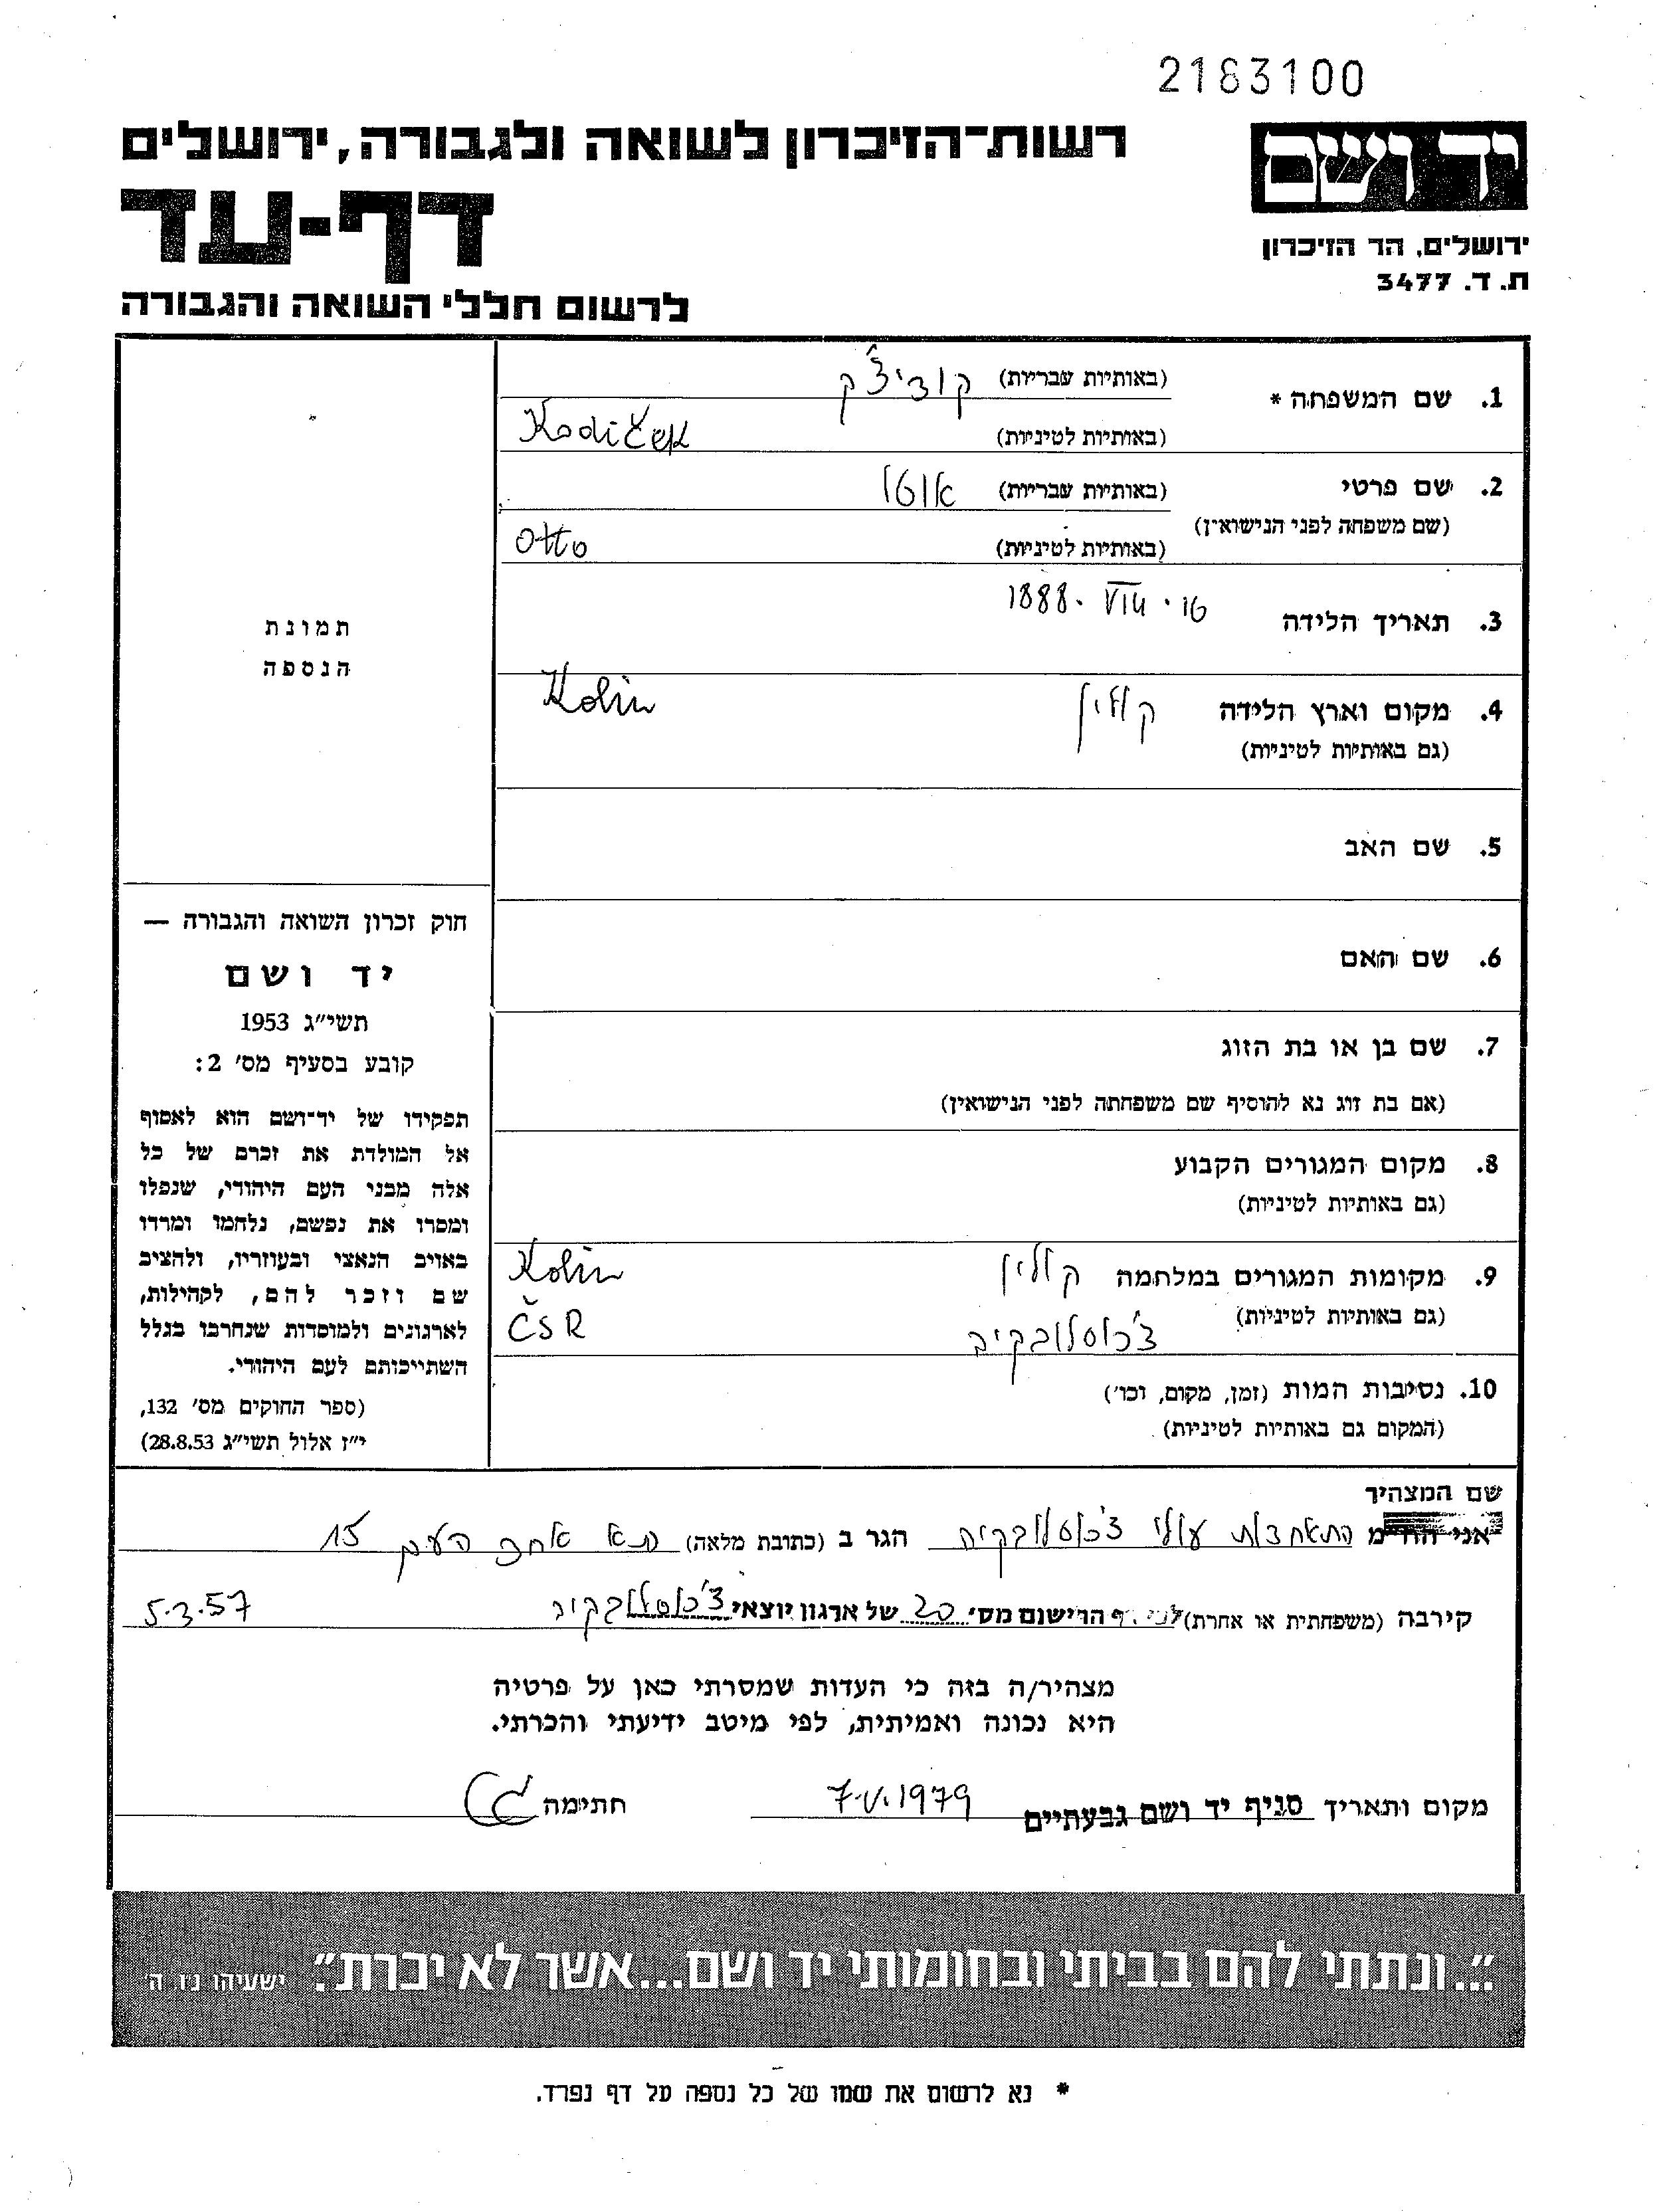 2183100
יד ושם
רשות-הזיכרון לשואה ולגבורה, ירושלים
דף-עד
ירושלים, הר הזיכרון
ת. ד. 3477
לרשום חללי השואה והגבורה
1. שם המשפחה * (באותיות עבריות) קודיצ'ק
(באותיות לטיניות) Kodiček
2. שם פרטי (באותיות עבריות) אוטו
(שם משפחה לפני הנישואין)
(באותיות לטיניות) Otto
3. תאריך הלידה 16. VIII. 1888
4. מקום וארץ הלידה קולין Kolin
(גם באותיות לטיניות)
5. שם האב
6. שם האם
7. שם בן או בת הזוג
(אם בת זוג נא להוסיף שם משפחתה לפני הנישואין)
8. מקום המגורים הקבוע
(גם באותיות לטיניות)
9. מקומות המגורים במלחמה קולין Kolin
(גם באותיות לטיניות) צ'כוסלובקיה ČSR
10. נסיבות המות (זמן, מקום, וכו')
(המקום גם באותיות לטיניות)
תמונת
הנספה
חוק זכרון השואה והגבורה —
יד ושם
תשי"ג 1953
קובע בסעיף מס' 2:
תפקידו של יד-ושם הוא לאסוף
אל המולדת את זכרם של כל
אלה מבני העם היהודי, שנפלו
ומסרו את נפשם, נלחמו ומרדו
באויב הנאצי ובעוזריו, ולהציב
שם וזכר להם, לקהילות,
לארגונים ולמוסדות שנחרבו בגלל
השתייכותם לעם היהודי.
(ספר החוקים מס' 132,
י"ז אלול תשי"ג 28.8.53)
שם המצהיר
אני הח"מ התאחדות עולי צ'כוסלובקיה הגר ב (כתובת מלאה) ת"א אחד העם 15
קירבה (משפחתית או אחרת) לפי דף הרישום מס' 20 של ארגון יוצאי צ'כוסלובקיה 5.3.57
מצהיר/ה בזה כי העדות שמסרתי כאן על פרטיה
היא נכונה ואמיתית, לפי מיטב ידיעתי והכרתי.
מקום ותאריך סניף יד ושם גבעתיים 7.V.1979 חתימה
"...ונתתי להם בביתי ובחומותי יד ושם...אשר לא יכרת". ישעיהו נ"ו ה'
* נא לרשום את שמו של כל נספה על דף נפרד.